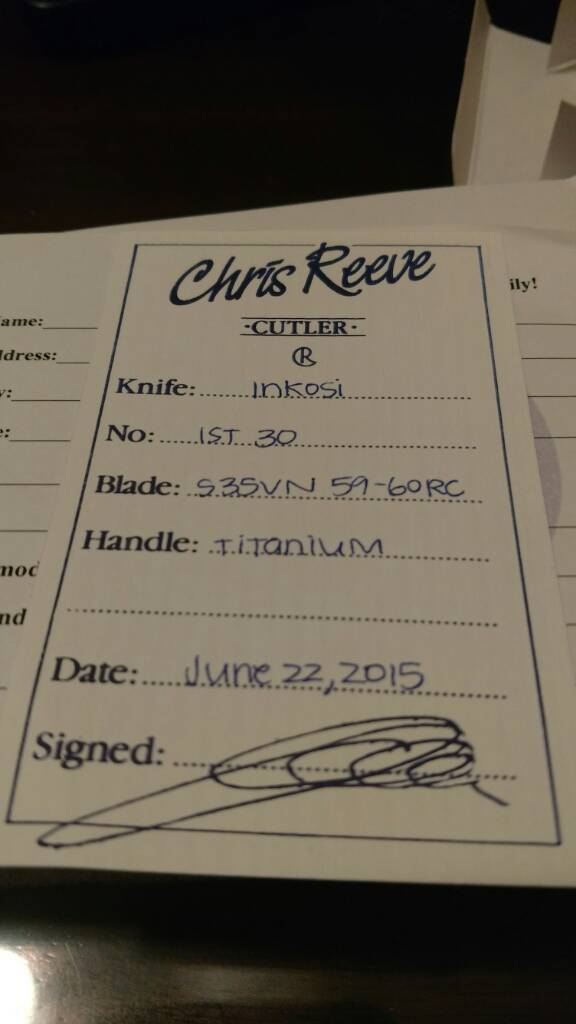 Chris Reeve
·CUTLER·
®
ily!
ame:
Knife: Inkosi
ddress:
No: IST 30
Blade: S35VN 59-60RC
Handle: TITANIUM
mod
nd
Date: June 22, 2015
Signed: